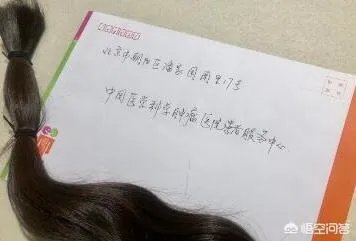 北京市朝阳区潘家园南里17号
中国医学科学肿瘤医院患者服务中心
悟空问答